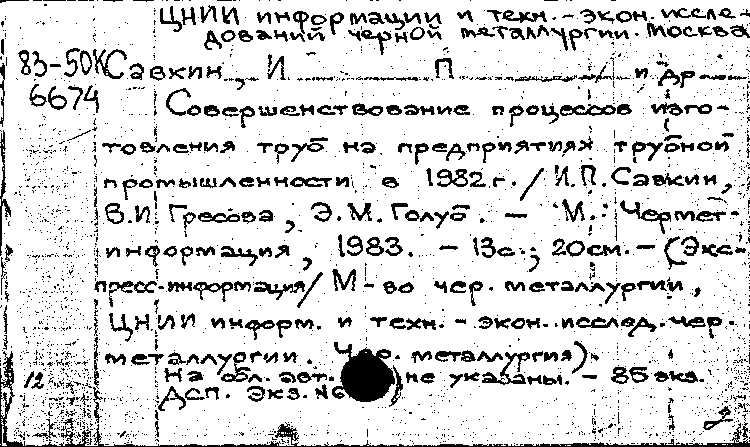 ЦНИИ информации и техн.-экон. иссле-
дований черной металлургии. Москва
83-50К Савкин, И П и др
6674
Совершенствование процессов изго-
товления труб на предприятиях трубной
промышленности в 1982 г. / И.П. Савкин,
В.И. Гресова, Э.М. Голуб. — М.: Чермет-
информация, 1983. - 13с.; 20см. - (Экс-
пресс-информация / М-во чер. металлургии,
ЦНИИ информ. и техн.-экон. исслед. чер.
металлургии. Чер. металлургия).
12 На обл. авт. не указаны. - 85 экз.
ДСП. Экз. №6